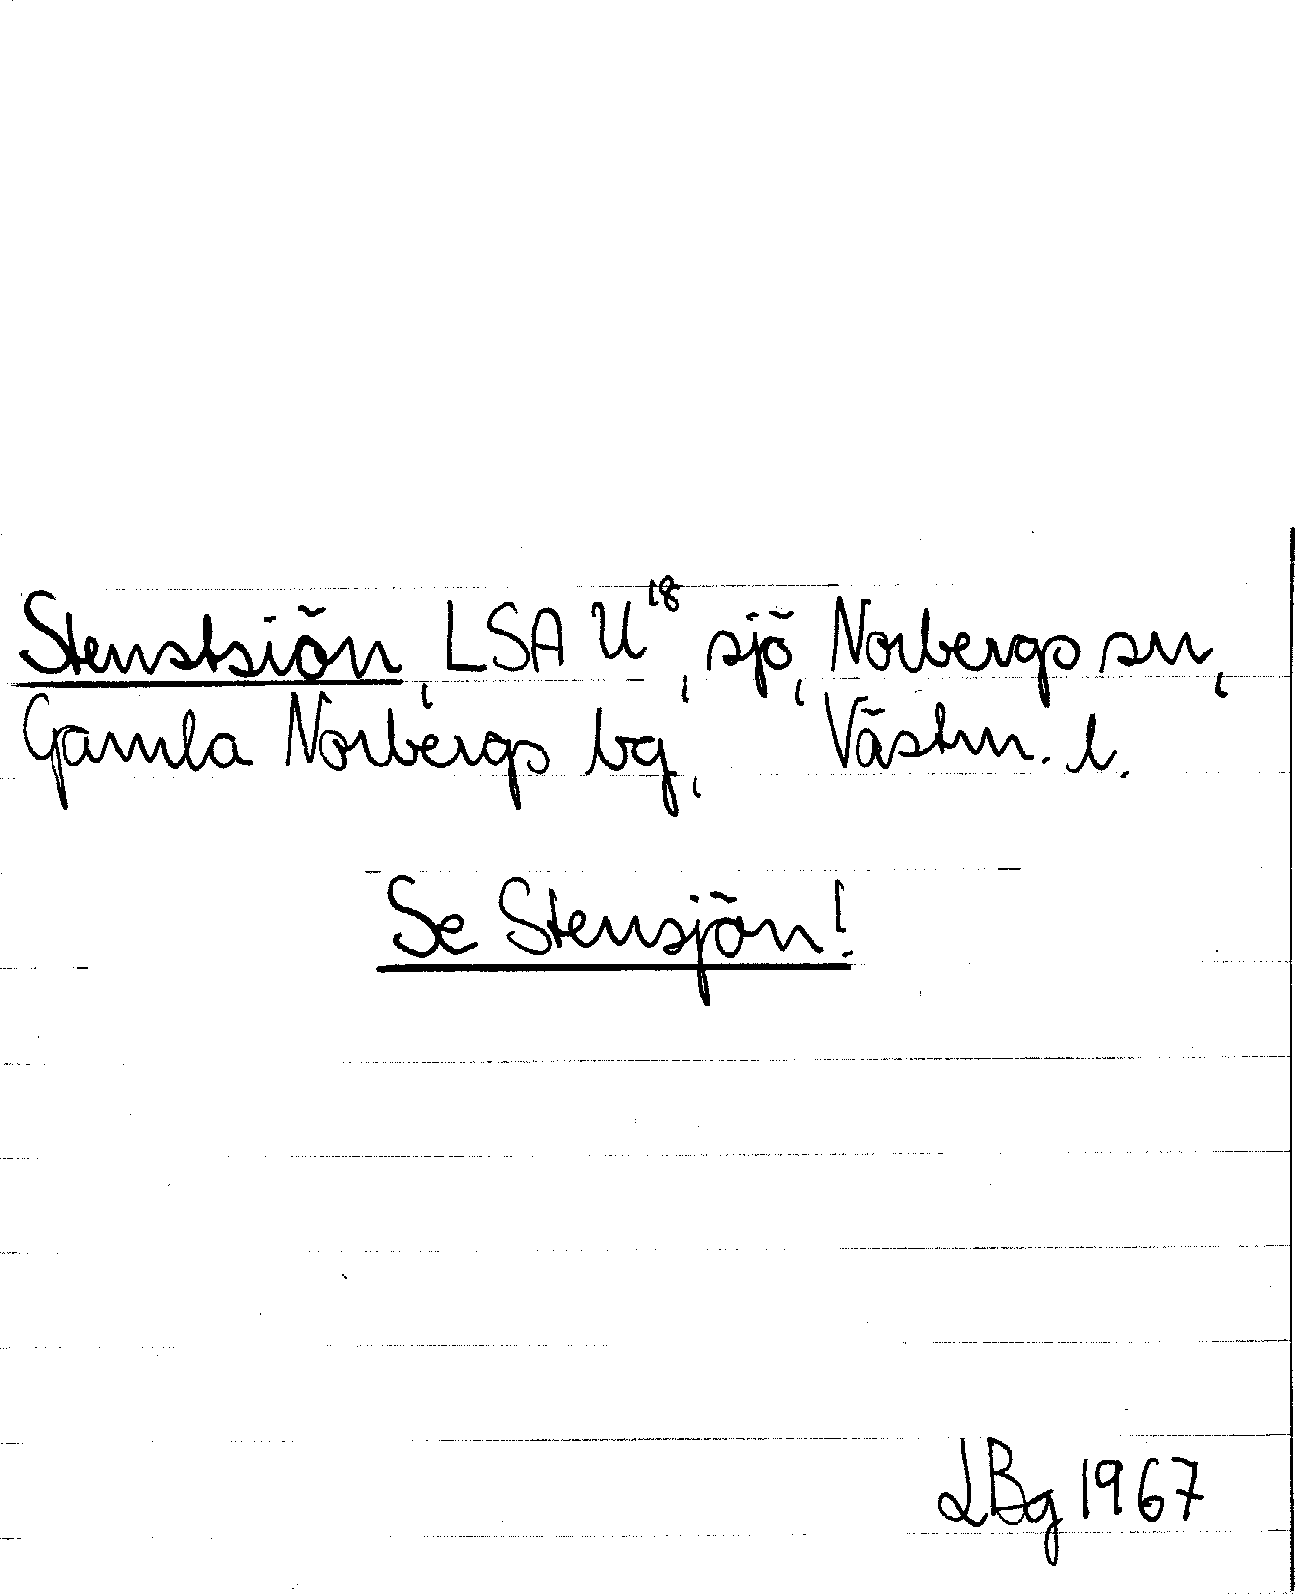 Stenstsiön, LSA U¹⁸, sjö, Norbergs sn,
Gamla Norbergs bg, Västm. l.
Se Stensjön!
LBg 1967